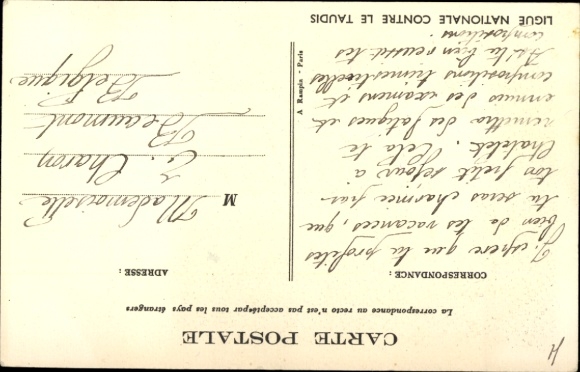 CARTE POSTALE
La correspondance au recto n'est pas acceptée par tous les pays étrangers
CORRESPONDANCE :
J'espère que tu profites
bien de tes vacances, que
tu seras charmée par
ton petit séjour à
Chatelet. Cela te
remettra des fatigues et
ennuis des examens et
compositions trimestrielles
As tu bien réussi tes
compositions.
LIGUE NATIONALE CONTRE LE TAUDIS
A Rampin - Paris
ADRESSE :
M Mademoiselle
Charon
Beaumont
Belgique
H